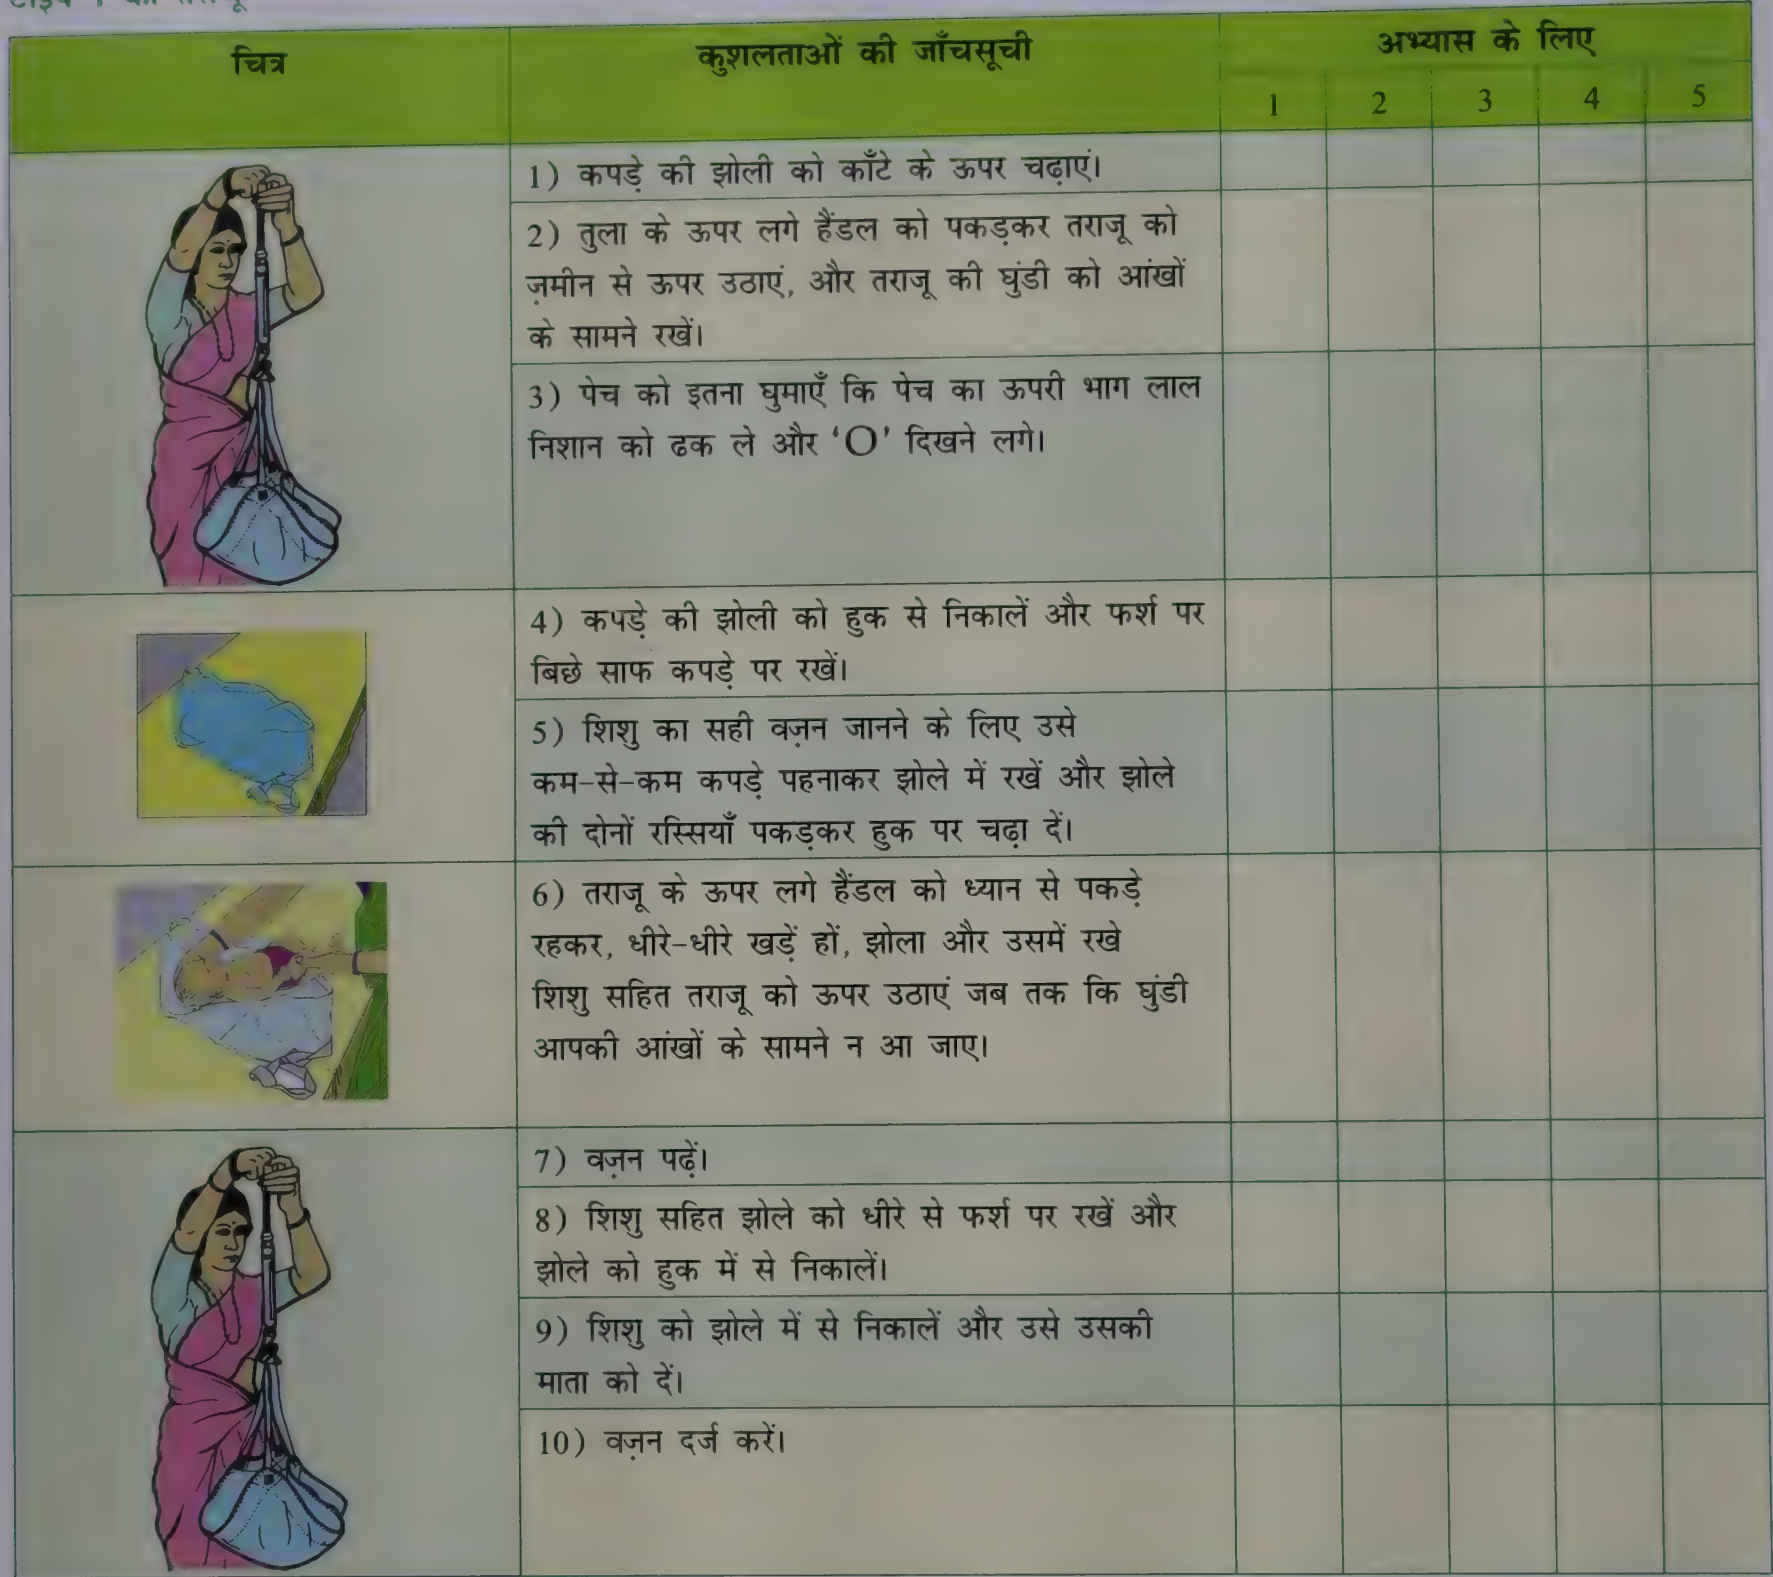 चित्र
कुशलताओं की जाँचसूची
अभ्यास के लिए
1 2 3 4 5
1) कपड़े की झोली को काँटे के ऊपर चढ़ाएं।
2) तुला के ऊपर लगे हैंडल को पकड़कर तराजू को
ज़मीन से ऊपर उठाएं, और तराजू की घुंडी को आंखों
के सामने रखें।
3) पेच को इतना घुमाएँ कि पेच का ऊपरी भाग लाल
निशान को ढक ले और ‘O’ दिखने लगे।
4) कपड़े की झोली को हुक से निकालें और फर्श पर
बिछे साफ कपड़े पर रखें।
5) शिशु का सही वज़न जानने के लिए उसे
कम-से-कम कपड़े पहनाकर झोले में रखें और झोले
की दोनों रस्सियाँ पकड़कर हुक पर चढ़ा दें।
6) तराजू के ऊपर लगे हैंडल को ध्यान से पकड़े
रहकर, धीरे-धीरे खड़ें हों, झोला और उसमें रखे
शिशु सहित तराजू को ऊपर उठाएं जब तक कि घुंडी
आपकी आंखों के सामने न आ जाए।
7) वज़न पढ़ें।
8) शिशु सहित झोले को धीरे से फर्श पर रखें और
झोले को हुक में से निकालें।
9) शिशु को झोले में से निकालें और उसे उसकी
माता को दें।
10) वज़न दर्ज करें।